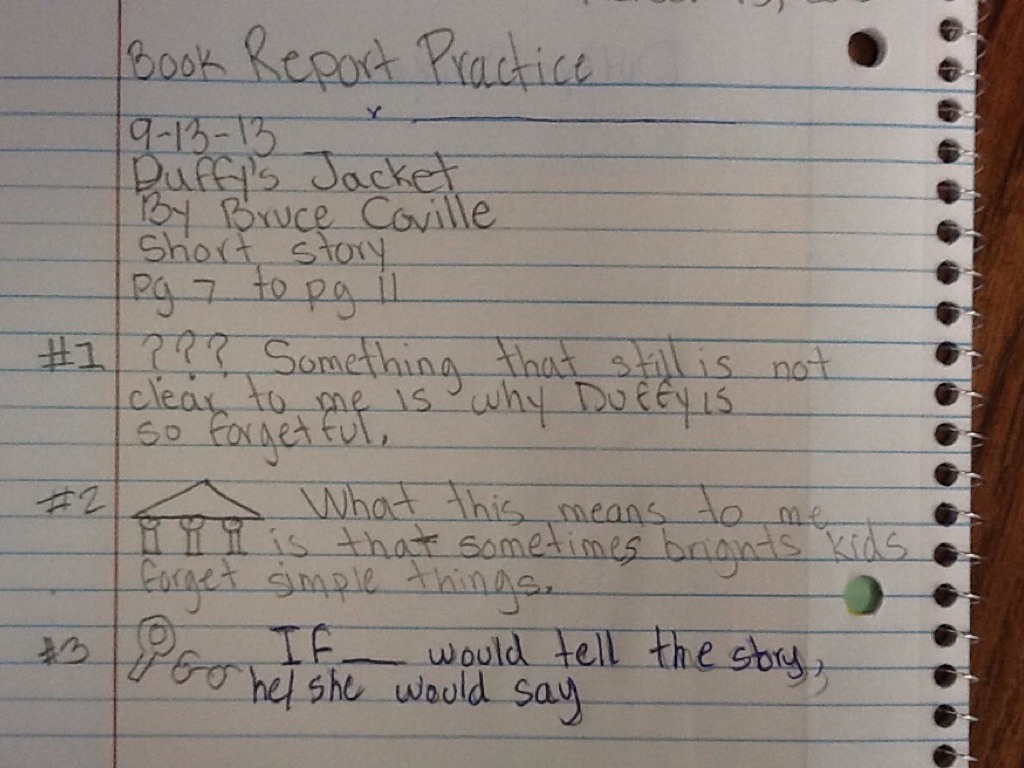 Book Report Practice
9-13-13
Duffy's Jacket
By Bruce Coville
Short story
pg 7 to pg 11
#1 ??? Something that still is not
clear to me is why Duffy is
so forgetful.
#2 What this means to me
is that sometimes brights kids
forget simple things.
#3 If __ would tell the story,
he/she would say